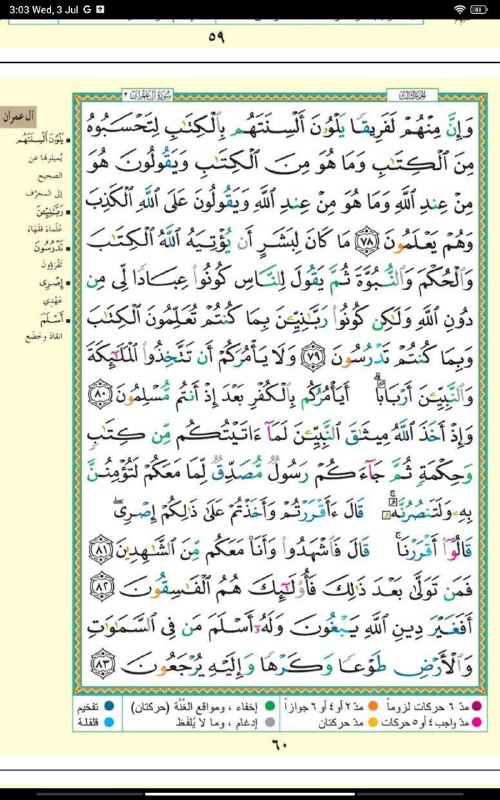 3:03 Wed, 3 Jul G
48
٥٩
الجزء الثالث
سورة آل عمران ٣
آل عمران
وَإِنَّ مِنْهُمْ لَفَرِيقًا يَلْوُۥنَ أَلْسِنَتَهُم بِٱلْكِتَٰبِ لِتَحْسَبُوهُ
مِنَ ٱلْكِتَٰبِ وَمَا هُوَ مِنَ ٱلْكِتَٰبِ وَيَقُولُونَ هُوَ
مِنْ عِندِ ٱللَّهِ وَمَا هُوَ مِنْ عِندِ ٱللَّهِ وَيَقُولُونَ عَلَى ٱللَّهِ ٱلْكَذِبَ
وَهُمْ يَعْلَمُونَ ٧٨ مَا كَانَ لِبَشَرٍ أَن يُؤْتِيَهُ ٱللَّهُ ٱلْكِتَٰبَ
وَٱلْحُكْمَ وَٱلنُّبُوَّةَ ثُمَّ يَقُولَ لِلنَّاسِ كُونُوا۟ عِبَادًا لِّى مِن
دُونِ ٱللَّهِ وَلَٰكِن كُونُوا۟ رَبَّٰنِيِّۦنَ بِمَا كُنتُمْ تُعَلِّمُونَ ٱلْكِتَٰبَ
وَبِمَا كُنتُمْ تَدْرُسُونَ ٧٩ وَلَا يَأْمُرَكُمْ أَن تَتَّخِذُوا۟ ٱلْمَلَٰٓئِكَةَ
وَٱلنَّبِيِّۦنَ أَرْبَابًا ۗ أَيَأْمُرُكُم بِٱلْكُفْرِ بَعْدَ إِذْ أَنتُم مُّسْلِمُونَ ٨٠
وَإِذْ أَخَذَ ٱللَّهُ مِيثَٰقَ ٱلنَّبِيِّۦنَ لَمَآ ءَاتَيْتُكُم مِّن كِتَٰبٍ
وَحِكْمَةٍ ثُمَّ جَآءَكُمْ رَسُولٌ مُّصَدِّقٌ لِّمَا مَعَكُمْ لَتُؤْمِنُنَّ
بِهِۦ وَلَتَنصُرُنَّهُۥ ۚ قَالَ ءَأَقْرَرْتُمْ وَأَخَذْتُمْ عَلَىٰ ذَٰلِكُمْ إِصْرِى ۖ
قَالُوٓا۟ أَقْرَرْنَا ۚ قَالَ فَٱشْهَدُوا۟ وَأَنَا۠ مَعَكُم مِّنَ ٱلشَّٰهِدِينَ ٨١
فَمَن تَوَلَّىٰ بَعْدَ ذَٰلِكَ فَأُو۟لَٰٓئِكَ هُمُ ٱلْفَٰسِقُونَ ٨٢
أَفَغَيْرَ دِينِ ٱللَّهِ يَبْغُونَ وَلَهُۥٓ أَسْلَمَ مَن فِى ٱلسَّمَٰوَٰتِ
وَٱلْأَرْضِ طَوْعًا وَكَرْهًا وَإِلَيْهِ يُرْجَعُونَ ٨٣
يَلْوُۥنَ أَلْسِنَتَهُم
يُميلونها عن
الصحيح
إلى المحرَّف
رَبَّٰنِيِّۦنَ
عُلَماءَ فُقَهَاءَ
تَدْرُسُونَ
تَقْرَؤونَ
إِصْرِى
عَهْدِي
أَسْلَمَ
انقادَ وخَضَعَ
مدّ ٦ حركات لزوماً
مدّ ٢ أو ٤ أو ٦ جوازاً
إخفاء، ومواقع الغُنَّة (حركتان)
تفخيم
مدّ واجب ٤ أو ٥ حركات
مدّ حركتان
إدغام، وما لا يُلفَظ
قلقلة
٦٠